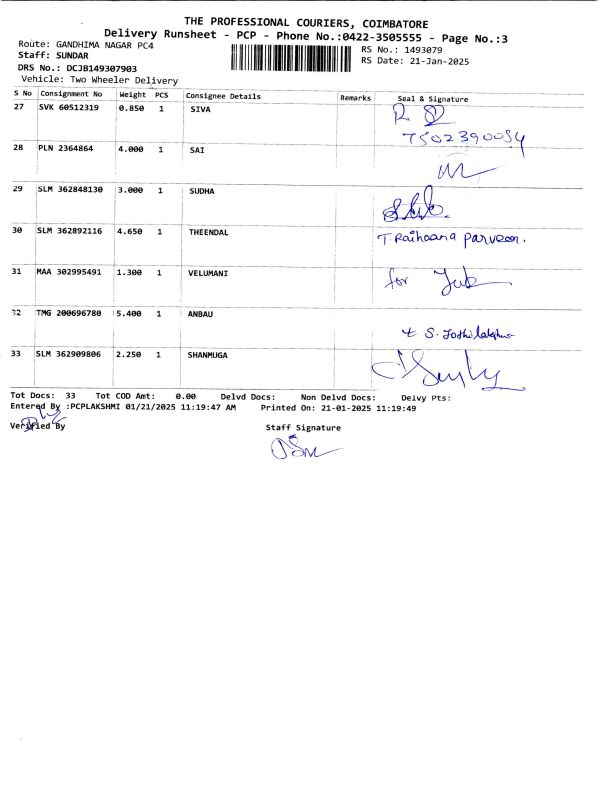 THE PROFESSIONAL COURIERS, COIMBATORE
Delivery Runsheet - PCP - Phone No.:0422-3505555 - Page No.:3
Route: GANDHIMA NAGAR PC4
RS No.: 1493079
Staff: SUNDAR
RS Date: 21-Jan-2025
DRS No.: DCJB149307903
Vehicle: Two Wheeler Delivery
S No Consignment No Weight PCS Consignee Details Remarks Seal & Signature
27 SVK 60512319 0.850 1 SIVA
7502390054
28 PLN 2364864 4.000 1 SAI
29 SLM 362848130 3.000 1 SUDHA
30 SLM 362892116 4.650 1 THEENDAL T. Raihoana Parveen.
31 MAA 302995491 1.300 1 VELUMANI for
32 TMG 200696780 5.400 1 ANBAU
33 SLM 362909806 2.250 1 SHANMUGA
Tot Docs: 33 Tot COD Amt: 0.00 Delvd Docs: Non Delvd Docs: Deivy Pts:
Entered By :PCPLAKSHMI 01/21/2025 11:19:47 AM Printed On: 21-01-2025 11:19:49
Verified By Staff Signature